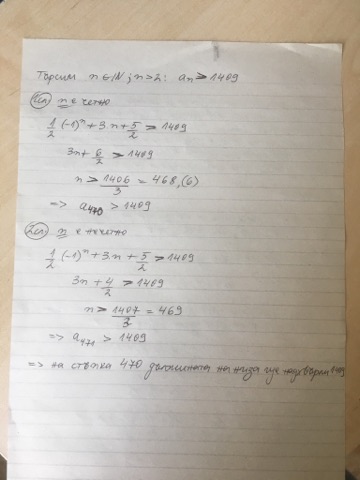 Търсим n ∈ ℕ; n>2: aₙ ≥ 1409
1сл) n е четно
1/2 (-1)ⁿ + 3n + 5/2 ≥ 1409
3n + 6/2 ≥ 1409
n ≥ 1406/3 = 468,(6)
=> a₄₇₀ > 1409
2сл) n е нечетно
1/2 (-1)ⁿ + 3n + 5/2 ≥ 1409
3n + 4/2 ≥ 1409
n ≥ 1407/3 = 469
=> a₄₇₁ > 1409
=> на стъпка 470 дължината на низа ще надхвърли 1409